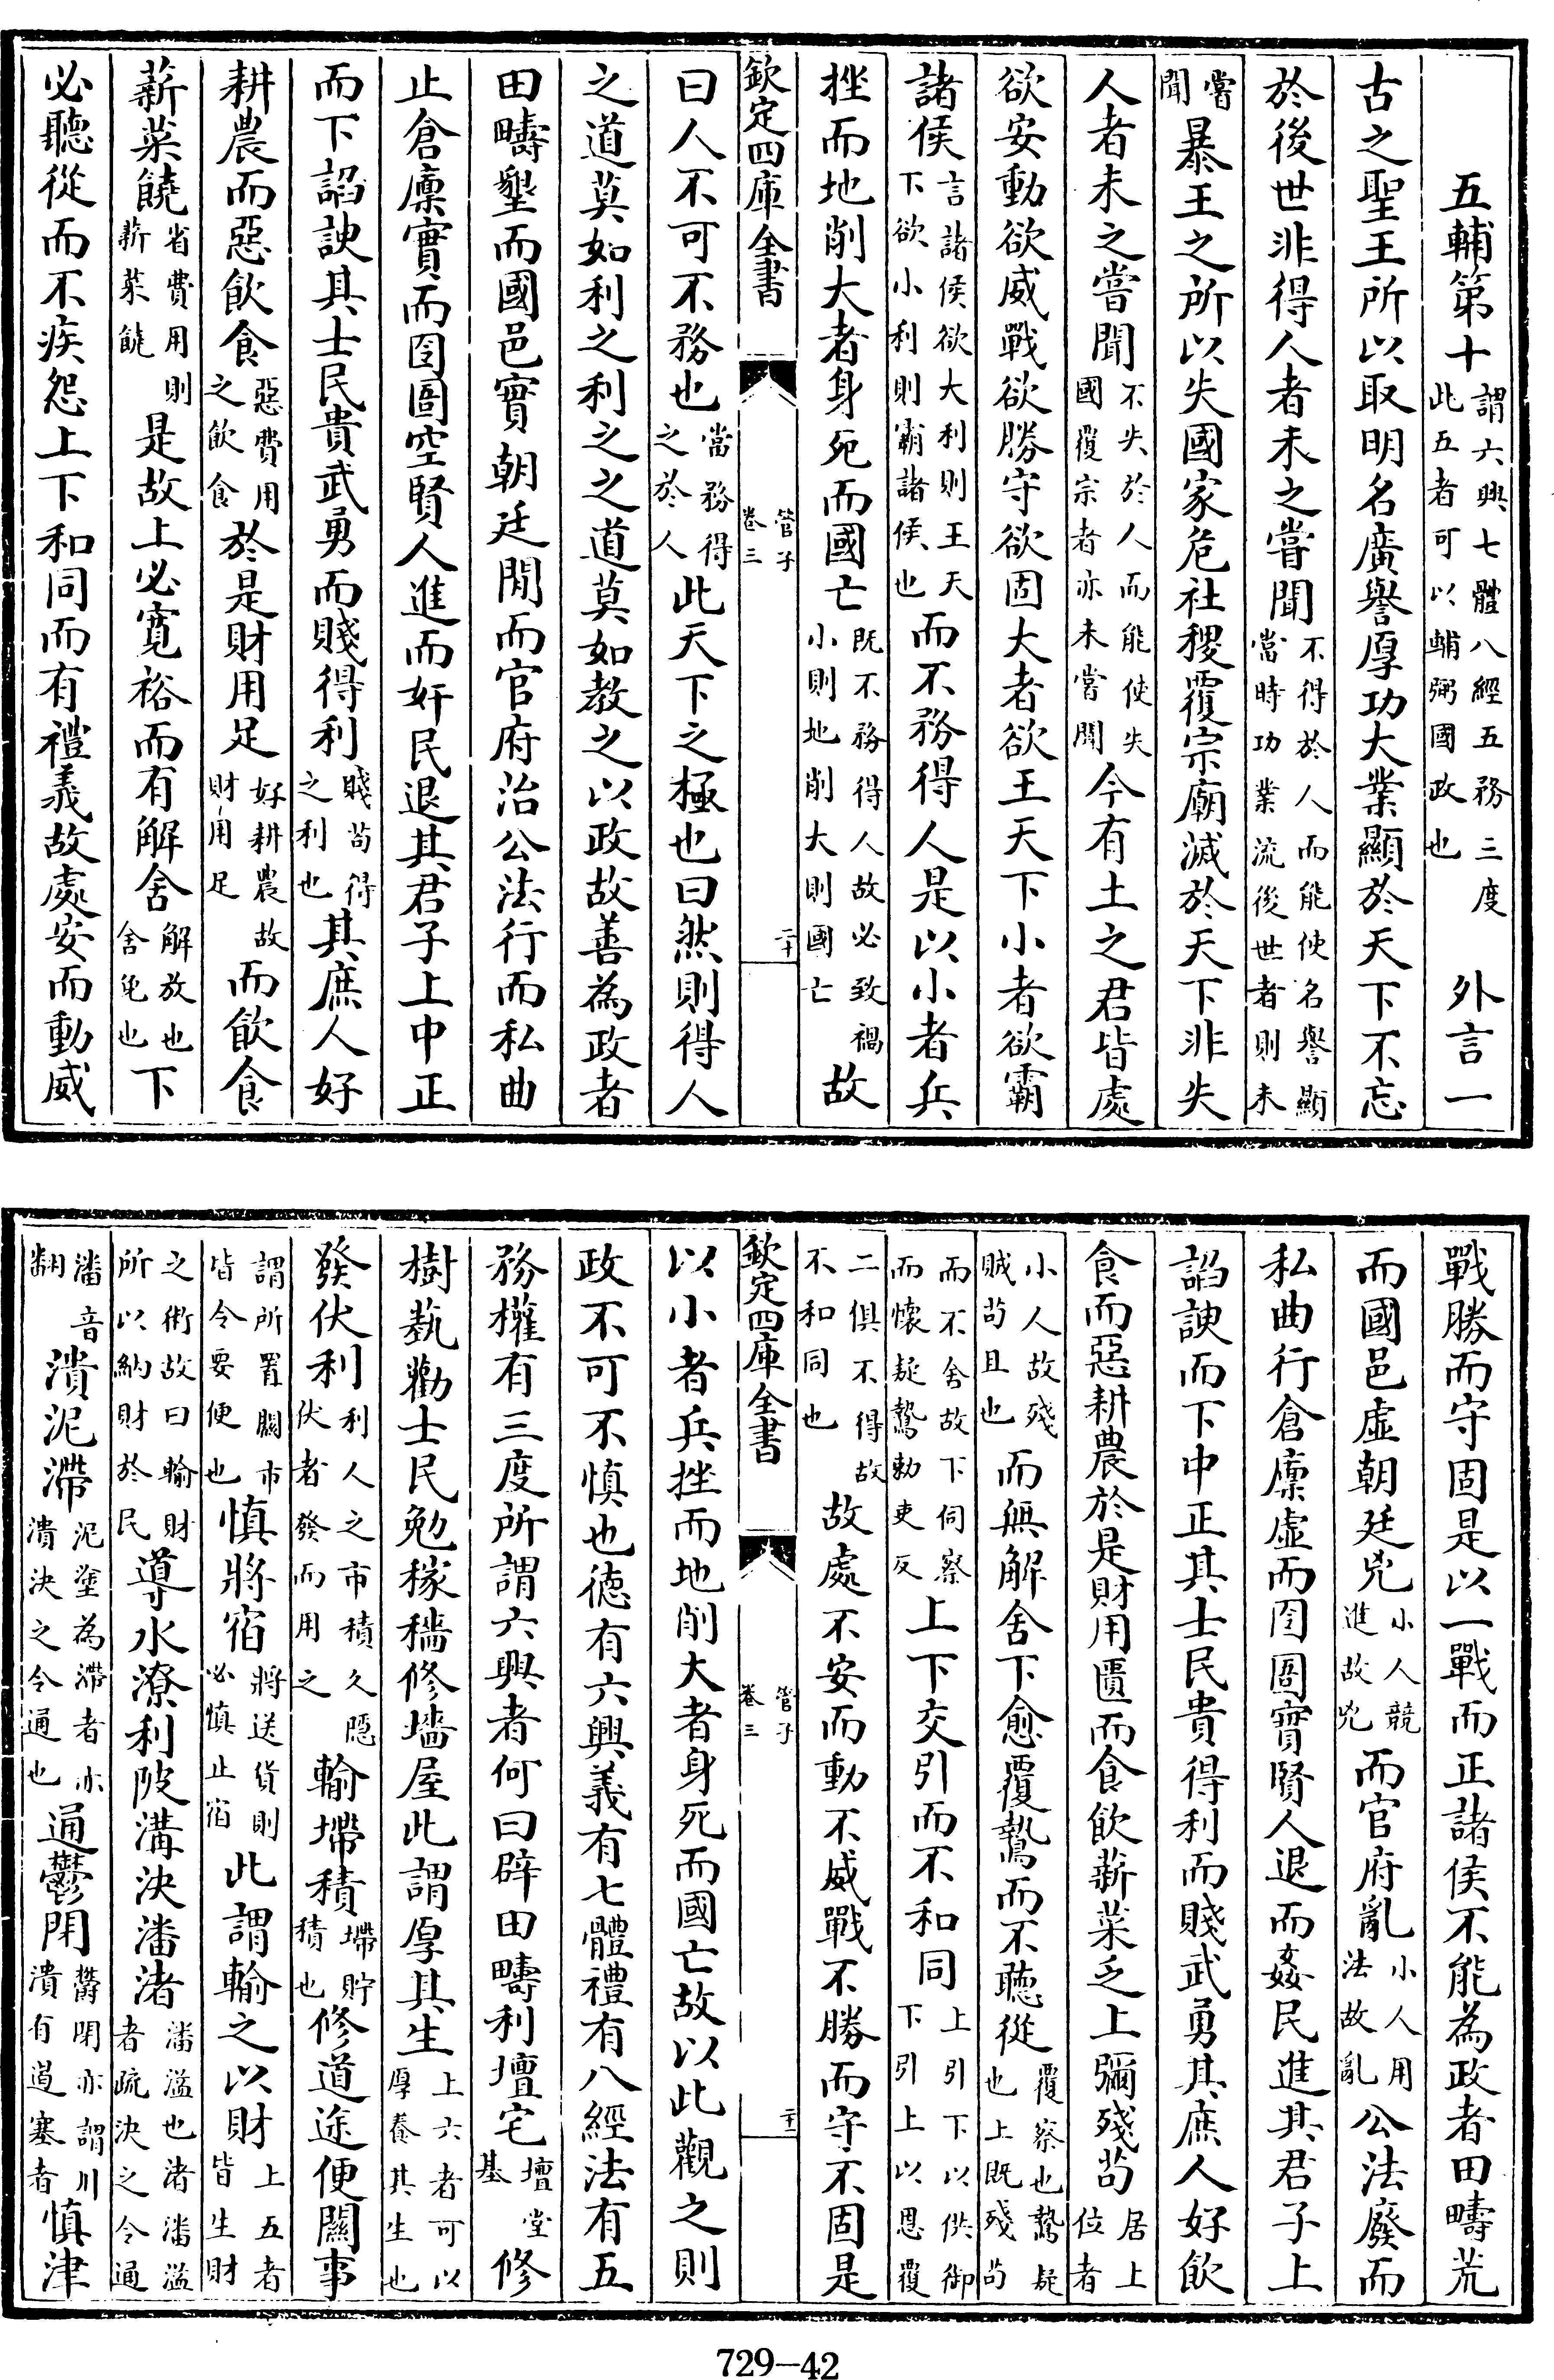 五輔第十謂六興七體八經五務三度此五者可以輔弼國政也　外言一
古之聖王所以取明名廣譽厚功大業顯於天下不忘
於後世非得人者未之嘗聞不得於人而能使名譽顯當時功業流後世者則未
嘗聞暴王之所以失國家危社稷覆宗廟滅於天下非失
人者未之嘗聞不失於人而能使失國覆宗者亦未嘗聞今有土之君皆處
欲安動欲威戰欲勝守欲固大者欲王天下小者欲霸
諸侯言諸侯欲大利則王天下欲小利則霸諸侯也而不務得人是以小者兵
挫而地削大者身死而國亡既不務得人故必致禍小則地削大則國亡故
欽定四庫全書　管子卷三　二十
曰人不可不務也當務得之於人此天下之極也曰然則得人
之道莫如利之利之之道莫如教之以政故善為政者
田疇墾而國邑實朝廷閒而官府治公法行而私曲
止倉廩實而囹圄空賢人進而奸民退其君子上中正
而下諂諛其士民貴武勇而賤得利賤茍得之利也其庶人好
耕農而惡飲食惡費用之飲食於是財用足好耕農故財用足而飲食
薪菜饒省費用則薪菜饒是故上必寬裕而有解舍解放也舍免也下
必聽從而不疾怨上下和同而有禮義故處安而動威
戰勝而守固是以一戰而正諸侯不能為政者田疇荒
而國邑虛朝廷兇小人競進故兇而官府亂小人用法故亂公法廢而
私曲行倉廩虛而囹圄實賢人退而姦民進其君子上
諂諛而下中正其士民貴得利而賤武勇其庶人好飲
食而惡耕農於是財用匱而食飲薪菜乏上彌殘茍居上位者
小人故殘賊茍且也而無解舍下愈覆鷙而不聽從覆察也鷙疑也上既殘茍
而不舍故下伺察而懷疑鷙勅吏反上下交引而不和同上引下以供御下引上以恩覆
二俱不得故不和同也故處不安而動不威戰不勝而守不固是
欽定四庫全書　管子卷三　二十一
以小者兵挫而地削大者身死而國亡故以此觀之則
政不可不慎也德有六興義有七體禮有八經法有五
務權有三度所謂六興者何曰辟田疇利壇宅壇堂基修
樹蓺勸士民勉稼穡修墻屋此謂厚其生上六者可以厚養其生也
發伏利利人之市積久隱伏者發而用之輸墆積墆貯積也修道途便關市
謂所置關市皆令要便也慎將宿將送貨則必慎止宿此謂輸之以財上五者皆生財
之術故曰輸財所以納財於民導水潦利陂溝決潘渚潘溢也渚潘溢者疏決之令通
潘音翻潰泥滯泥塗為滯者亦潰決之令通也通鬱閉鬱閉亦謂川潰有遏塞者慎津
729—42